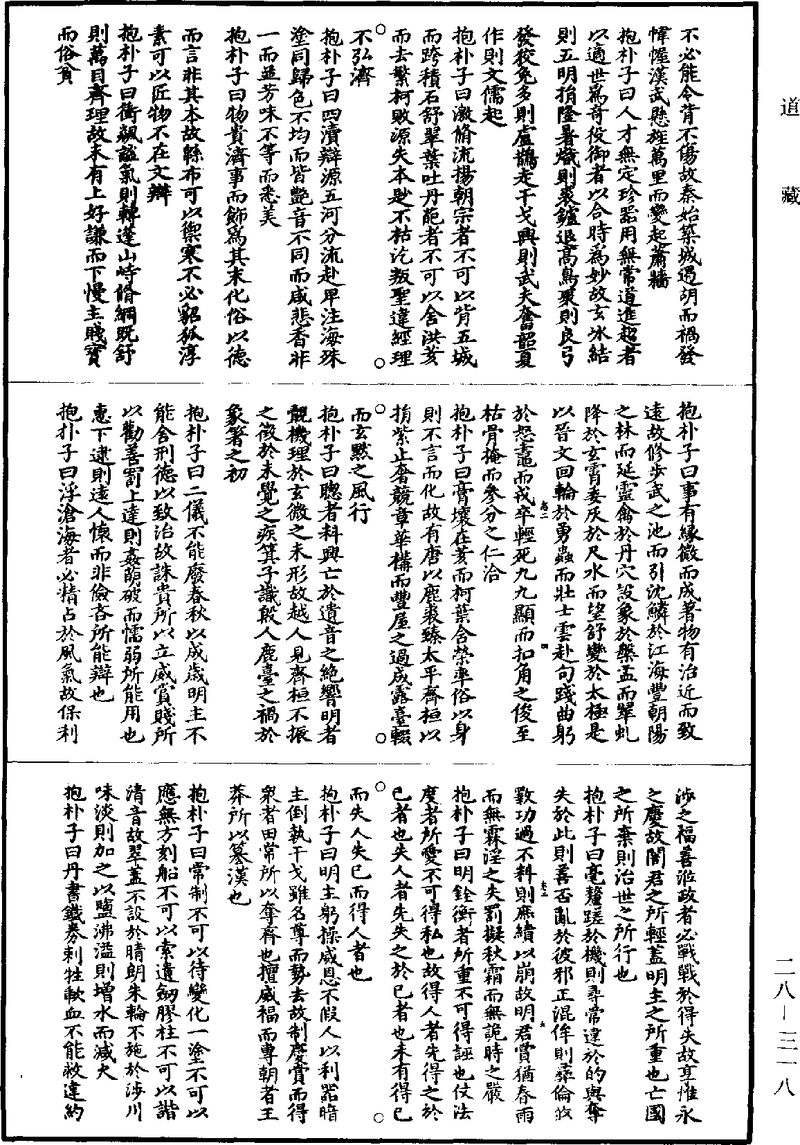 道藏
不必能令背不傷故秦始築城遏胡而禍發
幃幄漢武懸旌萬里而變起蕭牆
抱朴子曰人才無定珍器用無常道進趍者
以適世爲奇役御者以合時爲妙故玄冰結
則五明捐隆暑熾則裘鑪退高鳥聚則良弓
發狡兔多則盧鵲走干戈興則武夫奮韶夏
作則文儒起
抱朴子曰激脩流揚朝宗者不可以背五城
而跨積石舒翠葉吐丹葩者不可以舍洪荄
而去繁柯敗源失本尠不枯汔叛聖違經理
不弘濟
抱朴子曰四瀆辯源五河分流赴卑注海殊
塗同歸色不均而皆艷音不同而咸悲香非
一而並芳味不等而悉美
抱朴子曰物貴濟事而飾爲其末化俗以德
而言非其本故緜布可以禦寒不必貂狐淳
素可以匠物不在文辯
抱朴子曰衝飊謐氣則轉蓬山峙脩綱既舒
則萬目齊理故未有上好謙而下慢主賤寶
而俗貪
抱朴子曰事有緣微而成著物有治近而致
遠故修步武之池而引沈鱗於江海豐朝陽
之林而延靈禽於丹穴設象於槃盂而翠虬
降於玄霄委灰於尺水而望舒變於太極是
以晉文回輪於勇蟲而壯士雲赴句踐曲躬
於怒鼃而戎卒輕死九九顯而扣角之俊至
枯骨掩而參分之仁洽
抱朴子曰膏壤在荄而柯葉含榮率俗以身
則不言而化故有唐以鹿裘臻太平齊桓以
捐紫止奢競章華構而豐屋之過成露臺輟
而玄默之風行
抱朴子曰聰者料興亡於遺音之絕響明者
覿機理於玄微之未形故越人見齊桓不振
之徵於未覺之疾箕子識殷人鹿臺之禍於
象箸之初
抱朴子曰二儀不能廢春秋以成歲明主不
能舍刑德以致治故誅貴所以立威賞賤所
以勸善罰上達則姦萌破而懦弱所能用也
惠下逮則遠人懷而非儉吝所能辯也
抱朴子曰浮滄海者必精占於風氣故保利
涉之福善涖政者必戰戰於得失故享惟永
之慶故闇君之所輕蓋明主之所重也亡國
之所棄則治世之所行也
抱朴子曰毫釐蹉於機則尋常違於的與奪
失於此則善否亂於彼邪正混侔則彝倫攸
斁功過不料則庶績以崩故明君賞猶春雨
而無霖淫之失罰擬秋霜而無詭時之嚴
抱朴子曰明銓衡者所重不可得誣也仗法
度者所愛不可得私也故得人者先得之於
已者也失人者先失之於已者也未有得已
而失人失已而得人者也
抱朴子曰明主躬操威恩不假人以利器暗
主倒執干戈雖名尊而勢去故制慶賞而得
衆者田常所以奪齊也擅威福而專朝者王
莽所以簒漢也
抱朴子曰常制不可以待變化一塗不可以
應無方刻船不可以索遺劒膠柱不可以諧
清音故翠蓋不設於晴朗朱輪不施於涉川
味淡則加之以鹽沸溢則增水而減火
抱朴子曰丹書鐵劵刺牲歃血不能救違約
二八—三一八